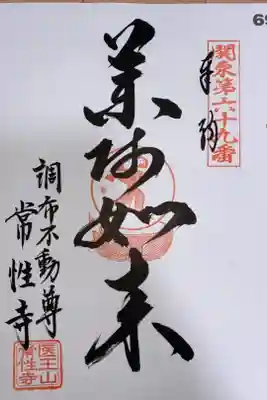 69
関東第六十九番
奉拝
薬師如来
調布不動尊
常性寺
医王山
常性寺